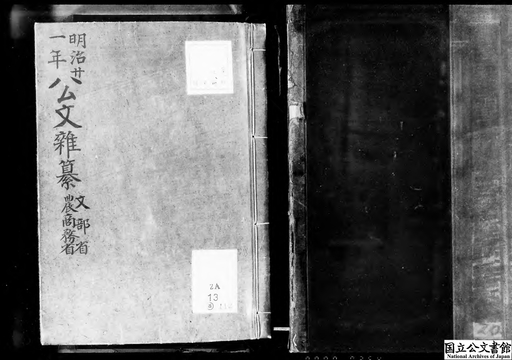 明治廿
一年
公文雜纂
文部省
農商務省
2A
13
国立公文書館
National Archives of Japan